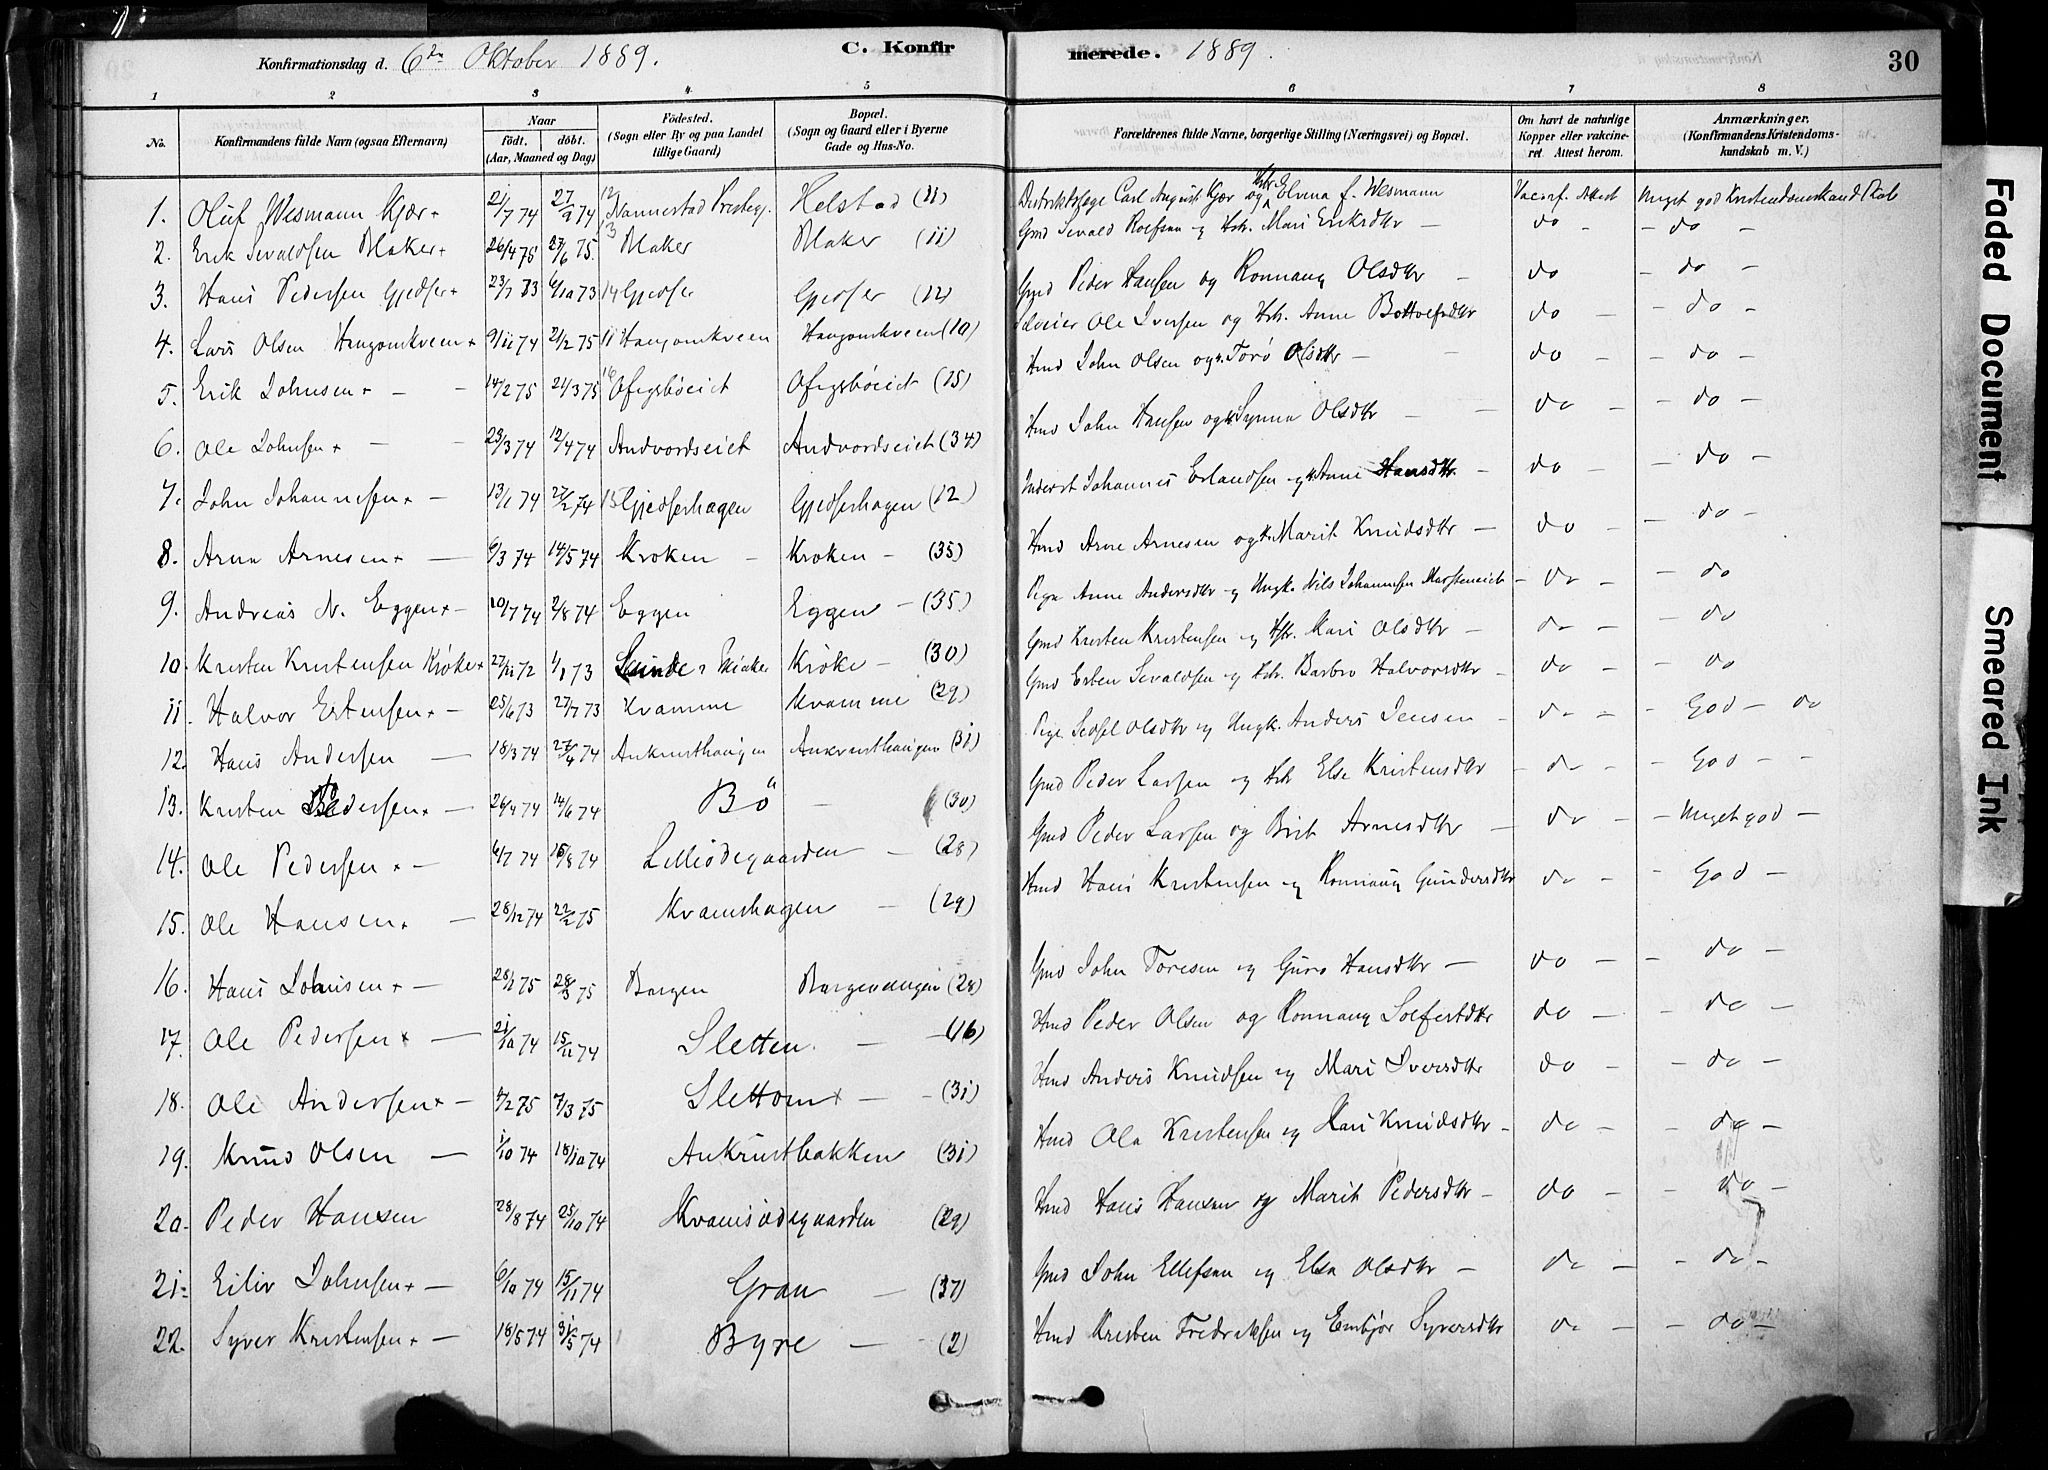 Konfirmationsdag d. 6te Oktober 1889. C. Konfirmerede. 1889. 30
1 2 3 4. 5 6 7 8
No. Konfirmandens fulde Navn (ogsaa Efternavn) Naar födt. döbt. (Aar, Maaned og Dag) Födested. (Sogn eller By og paa Landet tillige Gaard) Bopæl. (Sogn og Gaard eller i Byerne Gade og Hus-No. Forældrenes fulde Navne, borgerlige Stilling (Næringsvei) og Bopæl. Om havt de naturlige Kopper eller vakcineret. Attest herom. Anmærkninger. (Konfirmandens Kristendomskundskab m. V.)
1. Oluf Wesmann Kjær 21/7 74 27/9 74 Nannestad Præstegj. Helstad (11) Distriktslæge Carl August Kjær og Hstr. Elvina f. Wesmann Vaccinf. Attest Meget god Kristendomskundskab
2. Erik Sevaldsen Blaker 26/4 75 27/6 75. Blaker Blaker (11) Gmd Sevald Roefsen og Hst. Mari Eriksdtr do - do -
3. Hans Pedersen Gjedser 23/7 73 6/10 73 Gjedser Gjedser (12) Gmd Peder Hansen og Ronnaug Olsdtr do - do -
4. Lars Olsen Haugomkveen 9/11 74 21/2 75 Haugomkveen Haugomkveen (10) Selveier Ole Iversen og Hst. Anne Bottolfsdtr do - do -
5. Erik Johnsen 14/2 75 21/3 75 Ofigsböeiet Ofigsböeiet (15) Hmd John Olsen og Torö Olsdtr do - do -
6. Ole Johnsen 23/3 74 12/4 74 Andvordseiet Andvordseiet (34) Hmd John Hansen og Synna Olsdtr do - do -
7. John Johannesen 13/1 74 27/2 74 Gjedserhagen Gjedserhagen (12) Inderst Johannes Erlandsen og Anne Hansdtr do - do -
8. Arne Arnesen 6/3 74 14/5 74 Kroken Kroken (35) Hmd Arne Arnesen og Marit Knudsdtr do - do -
9. Andreas N. Eggen 10/7 74 2/8 74 Eggen Eggen (35) Pige Anne Andersdtr og Ungk. Nils Johannesen do - do
10. Kristen Kristensen Kröke 27/11 72 1/1 73 Sunde i Skiaker Kröke (30) Gmd Kristen Kristensen og Hst. Mari Olsdtr do - do
11. Halvor Estensen 25/6 73 27/7 73 Kvamme Kvamme (29) Gmd Esten Sevaldsen og Hst. Barbro Halvorsdtr do - do
12. Hans Andersen 18/3 74 27/4 74 Ankrusthaugen Ankrusthaugen (31) Pige Sedsel Olsdtr og Ungk. Anders Jensen do - God - do
13. Kristen Pedersen 26/4 74 14/6 74 Bö (30) Gmd Peder Larsen og Hst Else Kristensdtr do - God -
14. Ole Pedersen 6/7 74 16/8 74 Lilleödegaarden (28) Gmd Peder Larsen og Brit Arnesdtr do - Meget god -
15. Ole Hansen 28/12 74 22/2 75 Kvamshagen (29) Hmd Hans Kristensen og Ronnaug Gundersdtr do - God -
16. Hans Johnsen 28/1 75 28/3 75 Bergen (28) Gmd John Toresen og Guro Hansdtr do - do -
17. Ole Pedersen 21/10 74 15/11 74 Sletten (16) Hmd Peder Olsen og Ronnaug Solfestdtr do - do -
18. Ole Andersen 7/2 75 7/3 75 Slettom (31) Hmd Anders Knudsen og Mari Iversdtr do - do -
19. Knud Olsen 1/10 74 18/10 74 Ankrustbakken (31) Hmd Ole Kristensen og Kari Knudsdtr do - do -
20. Peder Hansen 28/8 74 25/10 74 Kvamsödegaarden (29) Hmd Hans Hansen og Marit Pedersdtr do - do -
21. Eiliv Johnsen 6/10 74 15/11 74 Gran (37) Gmd John Ellefsen og Else Olsdtr do - do -
22. Syver Kristensen 18/5 74 31/5 74 Byre (2) Hmd Kristen Fredriksen og Embjör Syversdtr do - do -
Faded Document
Smeared Ink